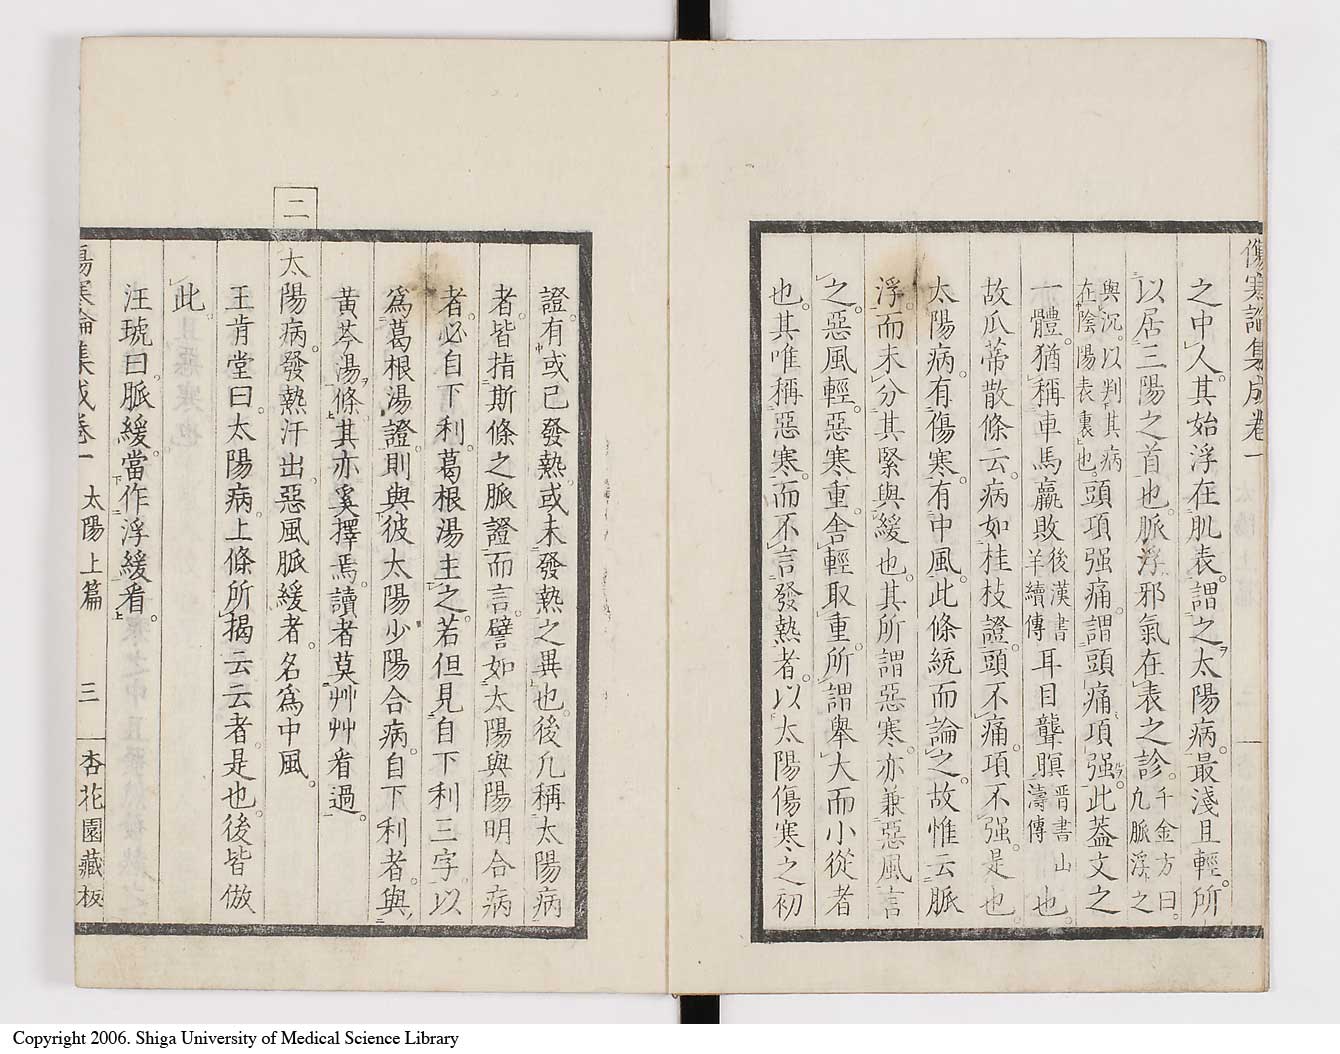 傷寒論集成卷一
之中人。其始浮在肌表。謂之太陽病。最淺且輕。所
以居三陽之首也。脈浮邪氣在表之診。千金方曰。凡脈浮之
與沉。以判其病在陰陽表裏也。頭項强痛。謂頭痛項强。此蓋文之
一體。猶稱車馬羸敗後漢書羊續傳耳目聾瞑晋書山濤傳也。
故瓜蒂散條云。病如桂枝證。頭不痛。項不强。是也。
太陽病。有傷寒。有中風。此條統而論之。故惟云脈
浮。而未分其緊與緩也。其所謂惡寒。亦兼惡風言
之。惡風輕。惡寒重。舍輕取重。所謂舉大而小從者
也。其唯稱惡寒。而不言發熱者。以太陽傷寒之初
證。有或已發熱。或未發熱之異也。後凡稱太陽病
者。皆指斯條之脈證而言。譬如太陽與陽明合病
者。必自下利。葛根湯主之。若但見自下利三字。以
爲葛根湯證。則與彼太陽少陽合病。自下利者。與
黃芩湯條。其亦奚擇焉。讀者莫艸艸看過。
二
太陽病。發熱汗出。惡風脈緩者。名爲中風。
王肯堂曰。太陽病。上條所揭云云者是也。後皆倣
此。
汪琥曰。脈緩。當作浮緩看。
傷寒論集成卷一 太陽上篇 三 杏花園藏板
Copyright 2006. Shiga University of Medical Science Library